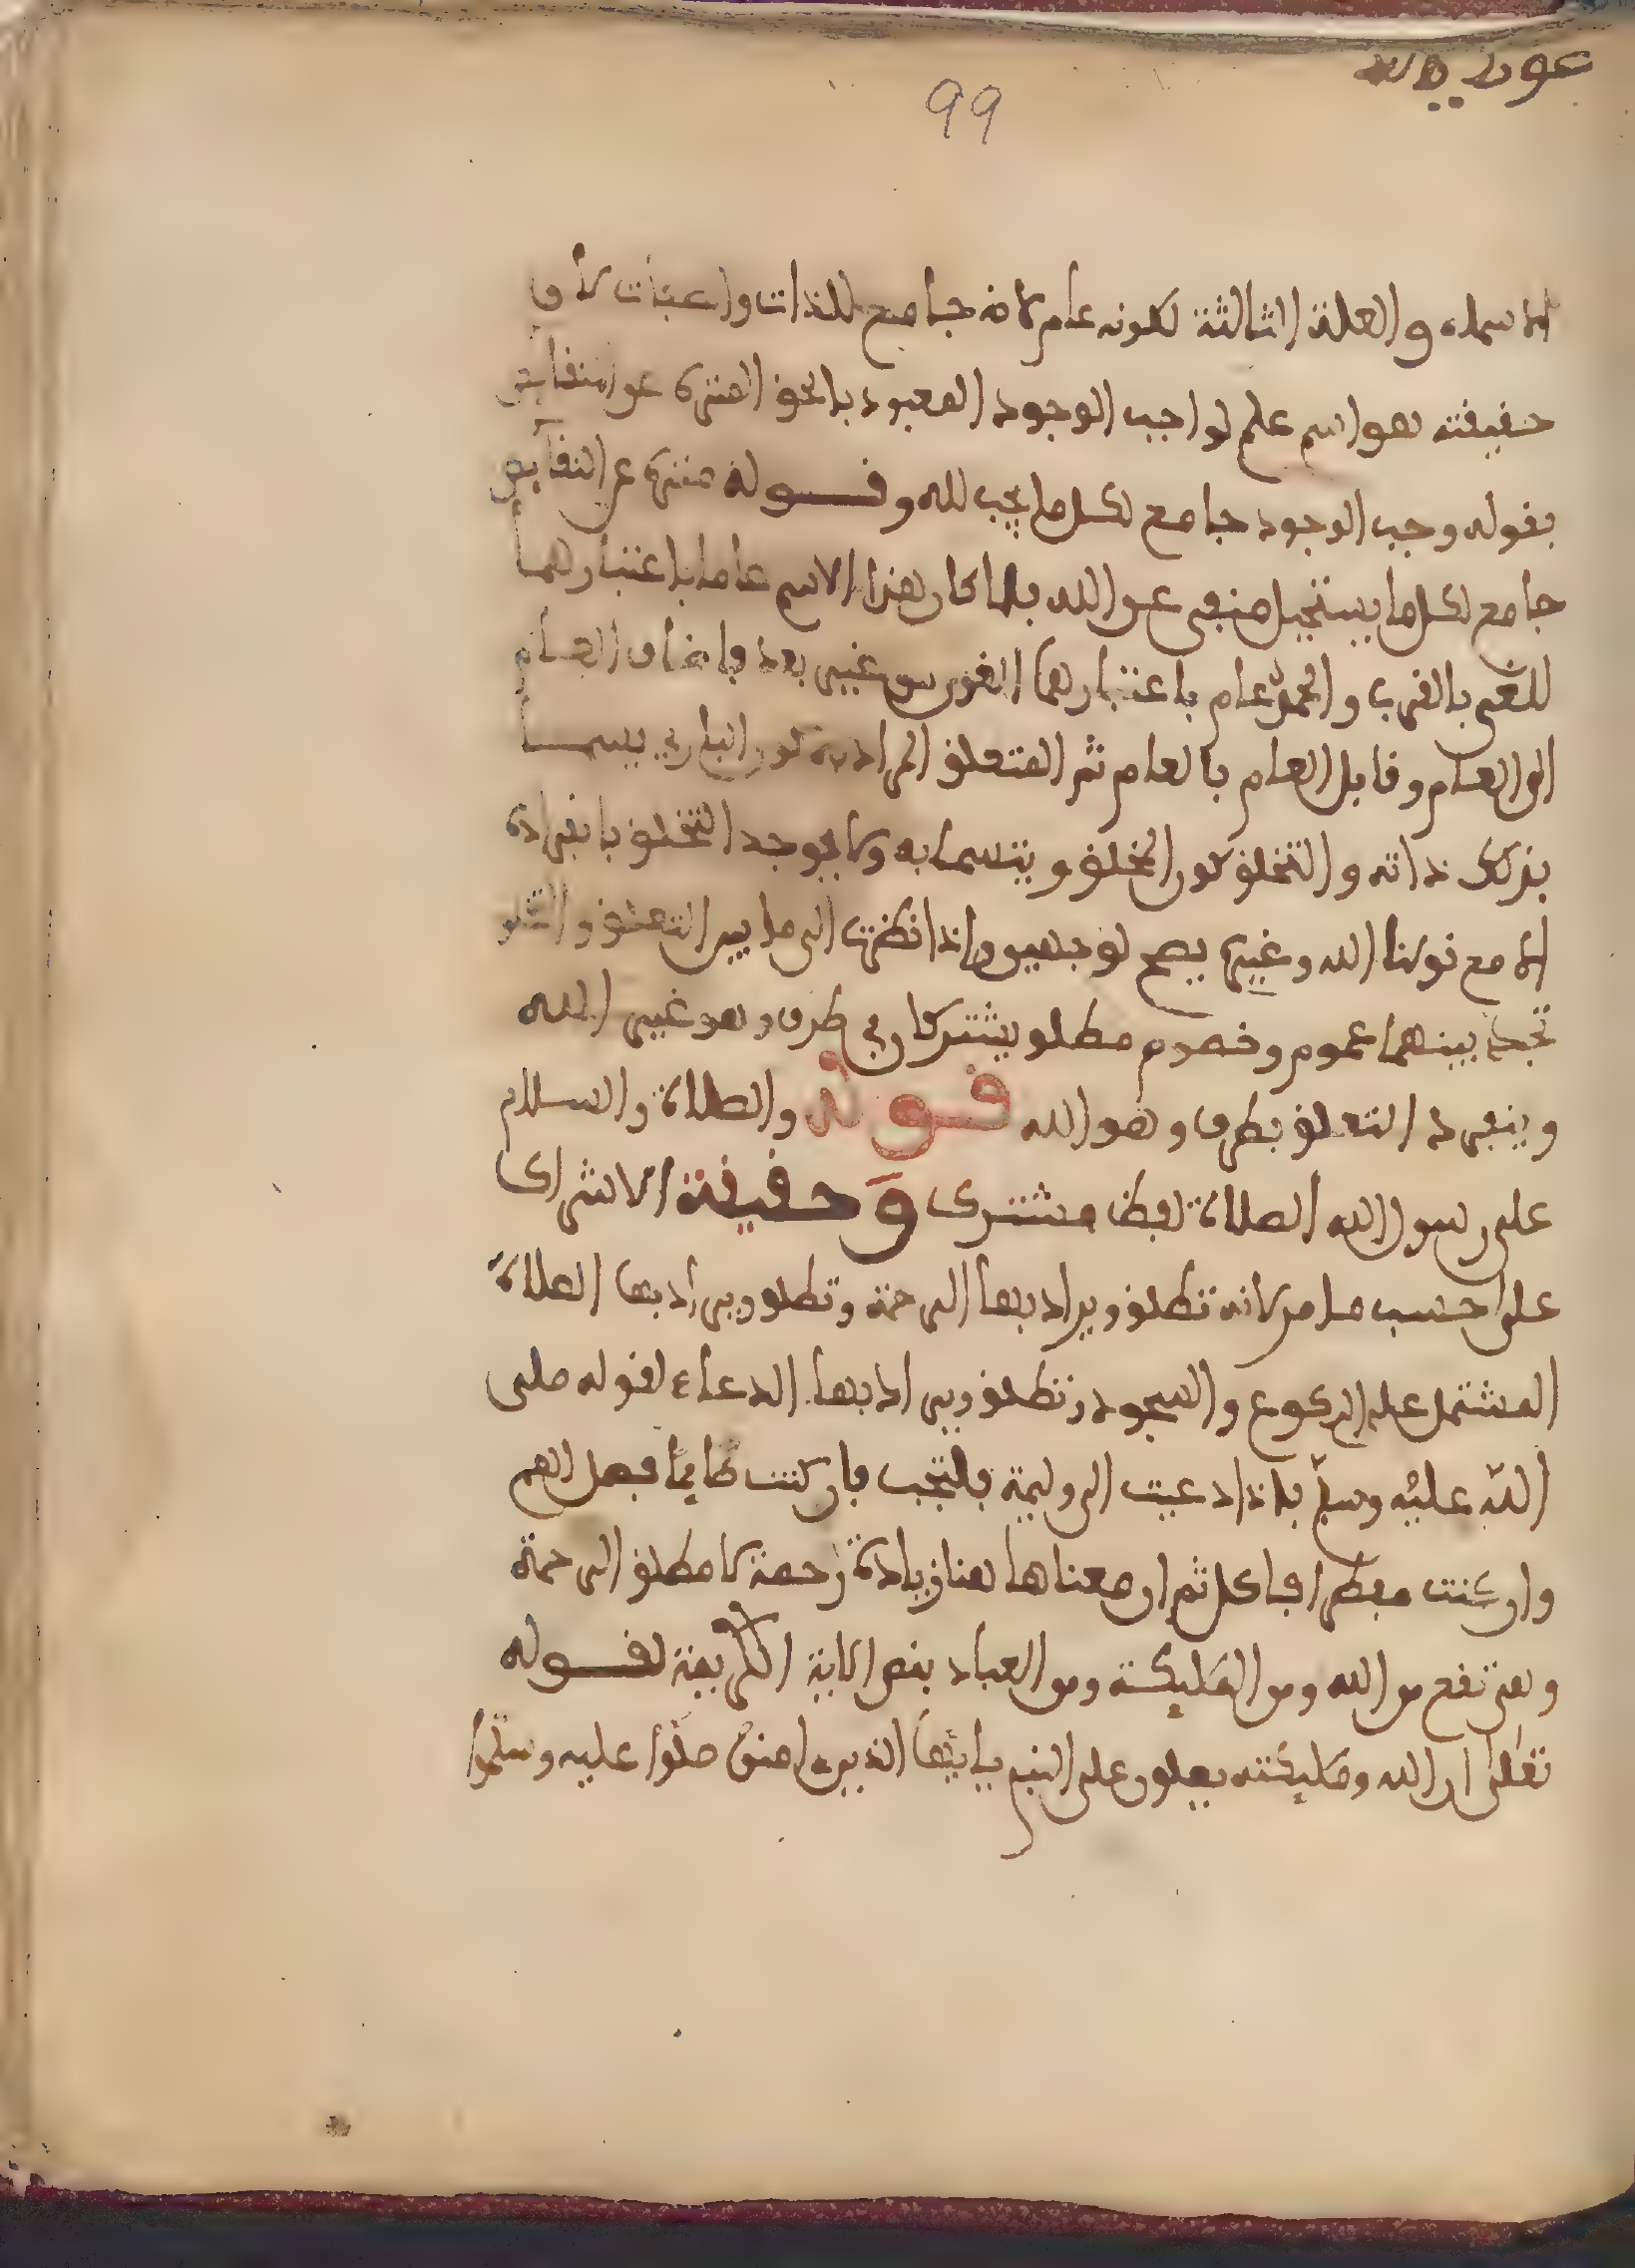 99
الاسماء والعلة الثالثة لكونه عام لانه جامع للذات والصفات لان
حقيقته هو اسم علم لواجب الوجود المعبود بالحق المنزه عن النقايص
بقوله وجب الوجود جامع لكل ما يجب لله وقوله منزه عن النقايص
جامع لكل ما يستحيل منفي عن الله فلما كان هذا الاسم عاما باعتبارهما
بالقرب والحمد عام باعتبارهما بعد العام
الى العام وقابل العام بالعام ثم المتعلق المراد به كون الباري يسما
بذلك ذاته والتخلق كون الخلق ويتسما به ولا يوجد التخلق بانفراده
الا مع قولنا الله وغيره يصح لوجهين واذا نظرت الى ما بين التعلق والتخلق
تجد بينهما عموم وخصوص مطلق يشتركان في طرف وهو غير الله
وينفرد التعلق بطرف وهو الله قوله والصلاة والسلام
على رسول الله الصلاة لفظ مشترك وحقيقة الاشتراك
على حسب ما مر لانه تطلق ويراد بها الرحمة وتطلق ويراد بها الصلاة
المشتمل على الركوع والسجود وتطلق ويراد بها الدعاء لقوله صلى
الله عليه وسلم فاذا دعيت الى وليمة فلتجب فان كنت صايما فصل لهم
وان كنت مفطرا فاكل ثم ان معناها هنا زيادة رحمة لا مطلق الرحمة
وهي تقع من الله ومن المليكة ومن العباد بنص الاية الكريمة لقوله
تعلى ان الله ومليكته يصلون على النبي يايها الذين امنوا صلوا عليه وسلموا